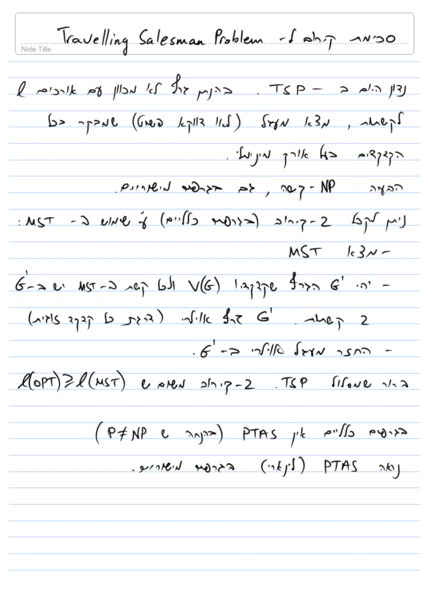 סכימת קירוב ל- Travelling Salesman Problem
Note Title
נדון היום ב - TSP. בהנתן גרף לא מכוון עם אורכים l
לקשתות, מצא מעגל (לאו דווקא פשוט) שמבקר בכל
הקדקדים בעל אורך מינימלי.
הבעיה NP-קשה, גם בגרפים מישוריים.
ניתן לקבל 2-קירוב (בגרפים כלליים) ע"י שימוש ב- MST:
- מצא MST
- יהי G' הגרף שקדקדיו V(G) ולכל קשת ב-MST יש ב-G'
2 קשתות. G' גרף אוילרי (דרגת כל קדקד זוגית)
- החזר מעגל אוילרי ב-G'.
ברור שמסלול TSP. 2-קירוב משום ש l(OPT)≥l(MST)
בגרפים כלליים אין PTAS (בהנחה ש P≠NP)
נראה PTAS (לינארי) בגרפים מישוריים.